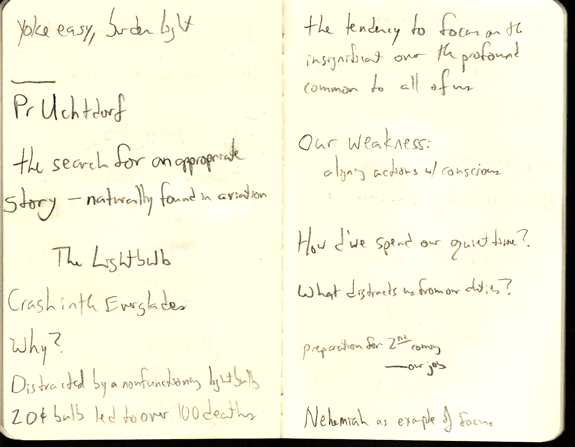 Yoke easy, burden light
Pr Uchtdorf
the search for an appropriate
story – naturally found in aviation
The Lightbulb
Crash in th Everglades
Why?
Distracted by a nonfunctioning lightbulb
20¢ bulb led to over 100 deaths
the tendency to focus on th
insignificant over th profound
common to all of us
Our weakness:
aligng actions w/ conscious
How d'we spend our quiet time?
What distracts us from our duties?
preparation for 2nd coming
— our job
Nehemiah as example of focus